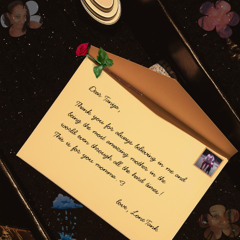 Dear Tanya,
Thank you for always believing in me and
being the most amazing mother in the
world even through all the hard times!
This is for you momma <3
love, Lovie Tink